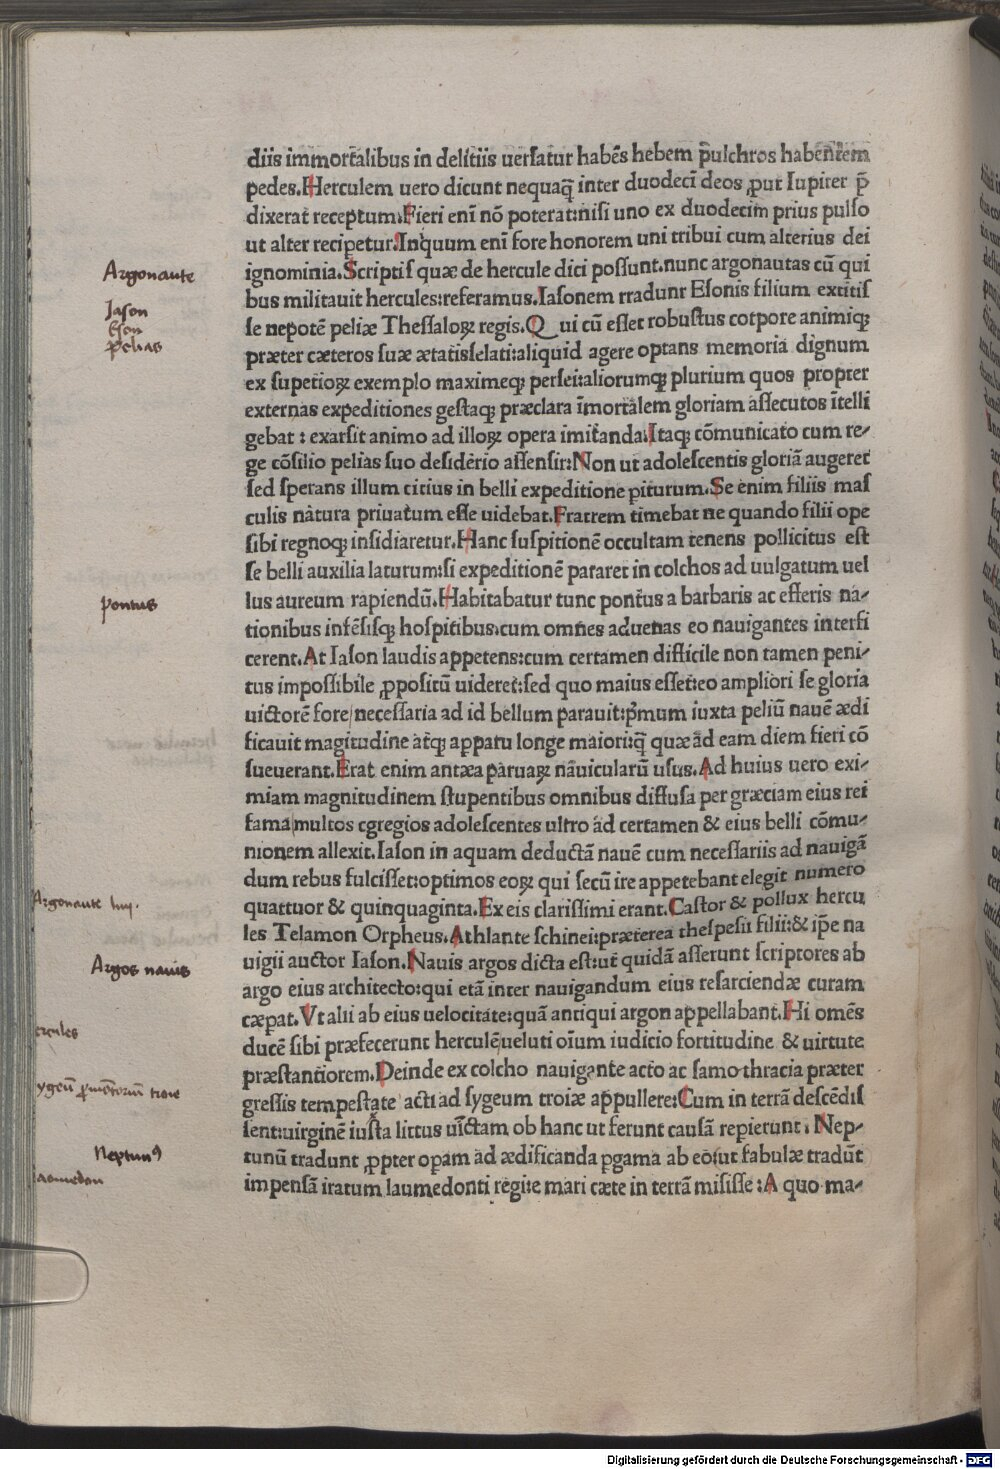 diis immortalibus in delitiis uersatur habēs hebem p̄ulchros habentem
pedes.Herculem uero dicunt nequaq̄ inter duodecī deos ꝓut Iupiter p̄
dixerat receptum.Fieri enī nō poterat:nisi uno ex duodecim prius pulso
ut alter recipetur.Iniquum enī fore honorem uni tribui cum alterius dei
ignominia.Scriptis quæ de hercule dici possunt.nunc argonautas cū qui
bus militauit hercules:referamus.Iasonem tradunt Esonis filium extitis
se nepotē peliæ Thessaloꝝ regis.Qui cū esset robustus corpore animiqꝫ
præter cæteros suæ ætatis:elati:aliquid agere optans memoria dignum
ex superioꝝ exemplo maximeqꝫ persei:aliorumqꝫ plurium quos propter
externas expeditiones gestaqꝫ præclara īmortalem gloriam assecutos ītelli
gebat : exarsit animo ad illoꝝ opera imitanda.Itaqꝫ cōmunicato cum re⸗
ge cōsilio pelias suo desiderio assensit:Non ut adolescentis gloriā augeret
sed sperans illum citius in belli expeditione piturum.Se enim filiis mas
culis natura priuatum esse uidebat.Fratrem timebat ne quando filii ope
sibi regnoqꝫ insidiaretur.Hanc suspitionē occultam tenens pollicitus est
se belli auxilia laturum:si expeditionē pararet in colchos ad uulgatum uel
lus aureum rapiendū.Habitabatur tunc pontus a barbaris ac efferis na⸗
tionibus infēsisqꝫ hospitibus:cum omnes aduenas eo nauigantes interfi
cerent.At Iason laudis appetens:cum certamen difficile non tamen peni⸗
tus impossibile ꝓpositū uideret:sed quo maius esset:eo ampliori se gloria
uictorē fore necessaria ad id bellum parauit:p̄mum iuxta peliū nauē ædi
ficauit magitudine atqꝫ apparu longe maiori:q̄ quæ ad eam diem fieri cō
sueuerant.Erat enim antæa paruaꝝ nauicularū usus.Ad huius uero exi⸗
miam magnitudinem stupentibus omnibus diffusa per græciam eius rei
fama multos egregios adolescentes ultro ad certamen & eius belli cōmu⸗
nionem allexit.Iason in aquam deductā nauē cum necessariis ad nauigā
dum rebus fulcisset:optimos eoꝝ qui secū ire appetebant elegit numero
quattuor & quinquaginta.Ex eis clarissimi erant.Castor & pollux hercu
les Telamon Orpheus.Athlante schinei:præterea thespesii filii:& ip̄e na
uigii auctor Iason.Nauis argos dicta est:ut quidā asserunt scriptores ab
argo eius architecto:qui etā inter nauigandum eius resarciendæ curam
cæpat.Vt alii ab eius uelocitate:quā antiqui argon appellabant.Hi omēs
ducē sibi præfecerunt herculē ueluti oīum iudicio fortitudine & uirtute
præstantiorem.Deinde ex colcho nauigante acto ac samo thracia præter
gressis tempestate acti ad sygeum troiæ appullere:Cum in terrā descēdis
sent:uirginē iusta littus uīctam ob hanc ut ferunt causā repierunt. Nep⸗
tunū tradunt ꝓpter opam ad ædificanda pgama ab eo:ut fabulæ tradūt
impensā iratum laumedonti regi:e mari cæte in terrā misisse :A quo ma⸗
Argonaute
Iason
Eson
pelias
pontus
Argonaute
Argos nauis
ercules
ygeū p̄montorium troie
Neptunꝰ
aomedon
Digitalisierung gefördert durch die Deutsche Forschungsgemeinschaft - DFG